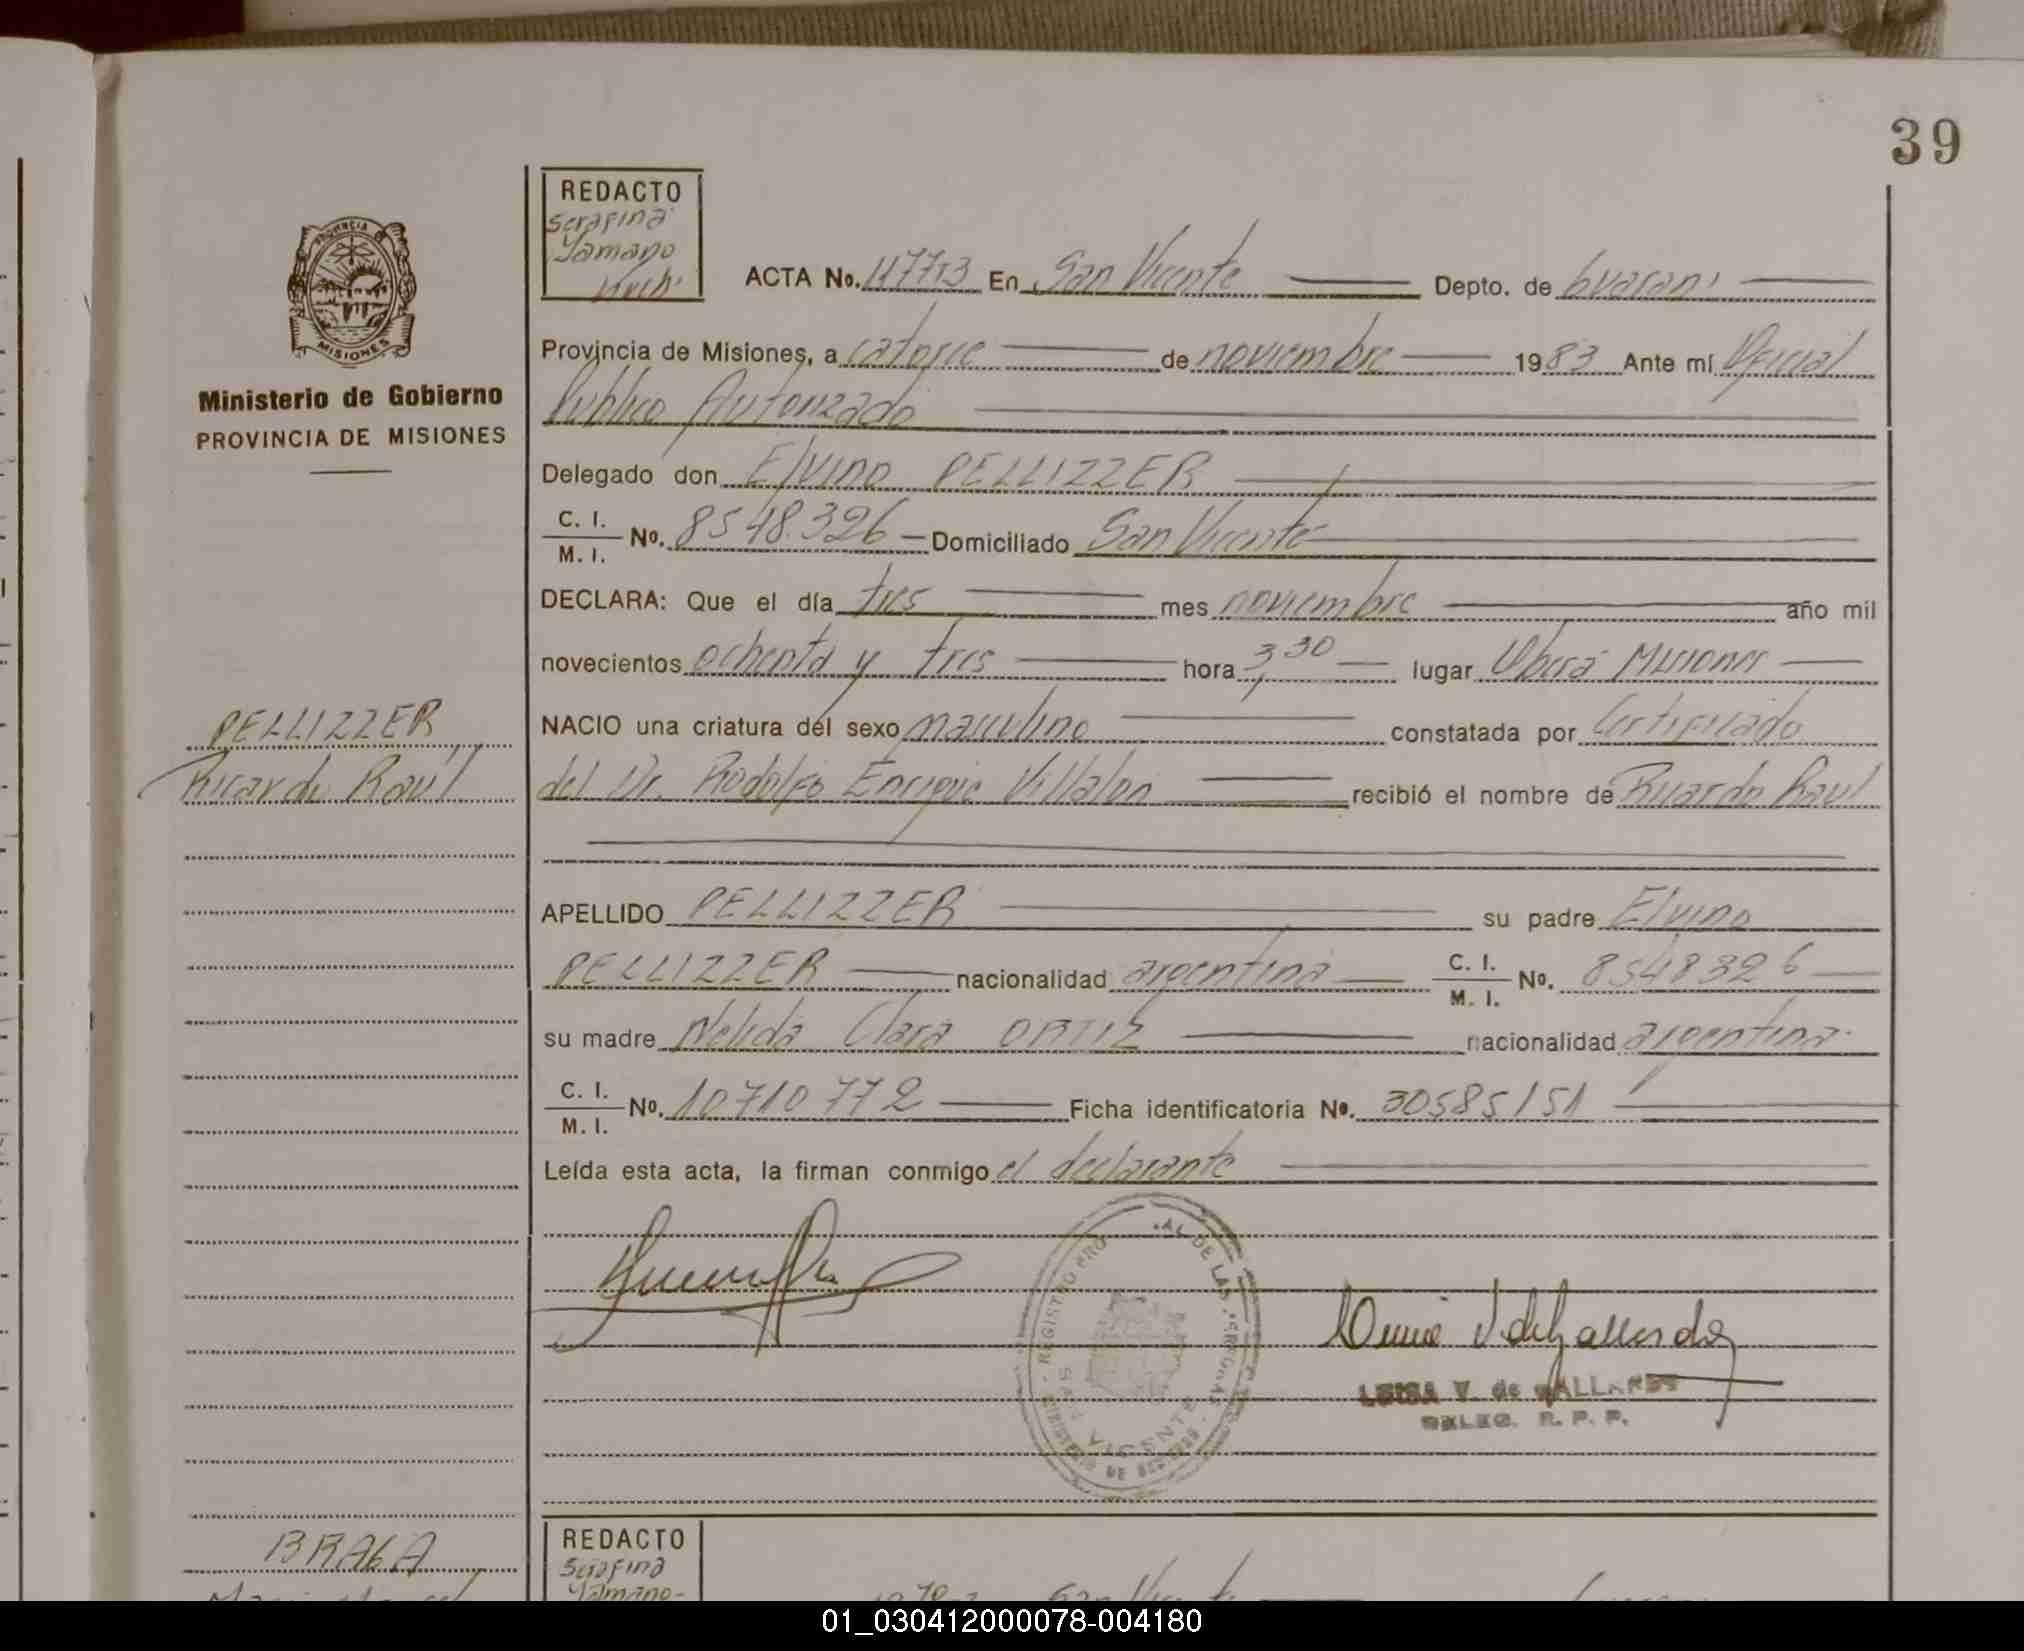 39
REDACTO
Serafina
Yamano
PROVINCIA DE
MISIONES
ACTA No. En San Vicente Depto. de Guaraní
Provincia de Misiones, a catorce de noviembre 1983 Ante mí Oficial
Público Autorizado
Ministerio de Gobierno
PROVINCIA DE MISIONES
Delegado don Elvino PELLIZZER
C. I.
M. I. No. 8548.326 Domiciliado San Vicente
DECLARA: Que el día tres mes noviembre año mil
novecientos ochenta y tres hora 3,30 lugar Oberá Misiones
PELLIZZER
Ricardo Raúl
NACIO una criatura del sexo masculino constatada por Certificado
del Dr. Rodolfo Enrique Villalon recibió el nombre de Ricardo Raúl
APELLIDO PELLIZZER su padre Elvino
PELLIZZER nacionalidad argentina C. I. M. I. No. 8548326
su madre Nelida Clara ORTIZ nacionalidad argentina
C. I.
M. I. No. 10710772 Ficha identificatoria No. 30585151
Leída esta acta, la firman conmigo el declarante
REGISTRO PRO AL DE LAS PERSONAS
SAN VICENTE
V. de GALLARDO
DELEG. R. P. P.
BRAGA
REDACTO
Serafina
Yamano
San Vicente
01_030412000078-004180